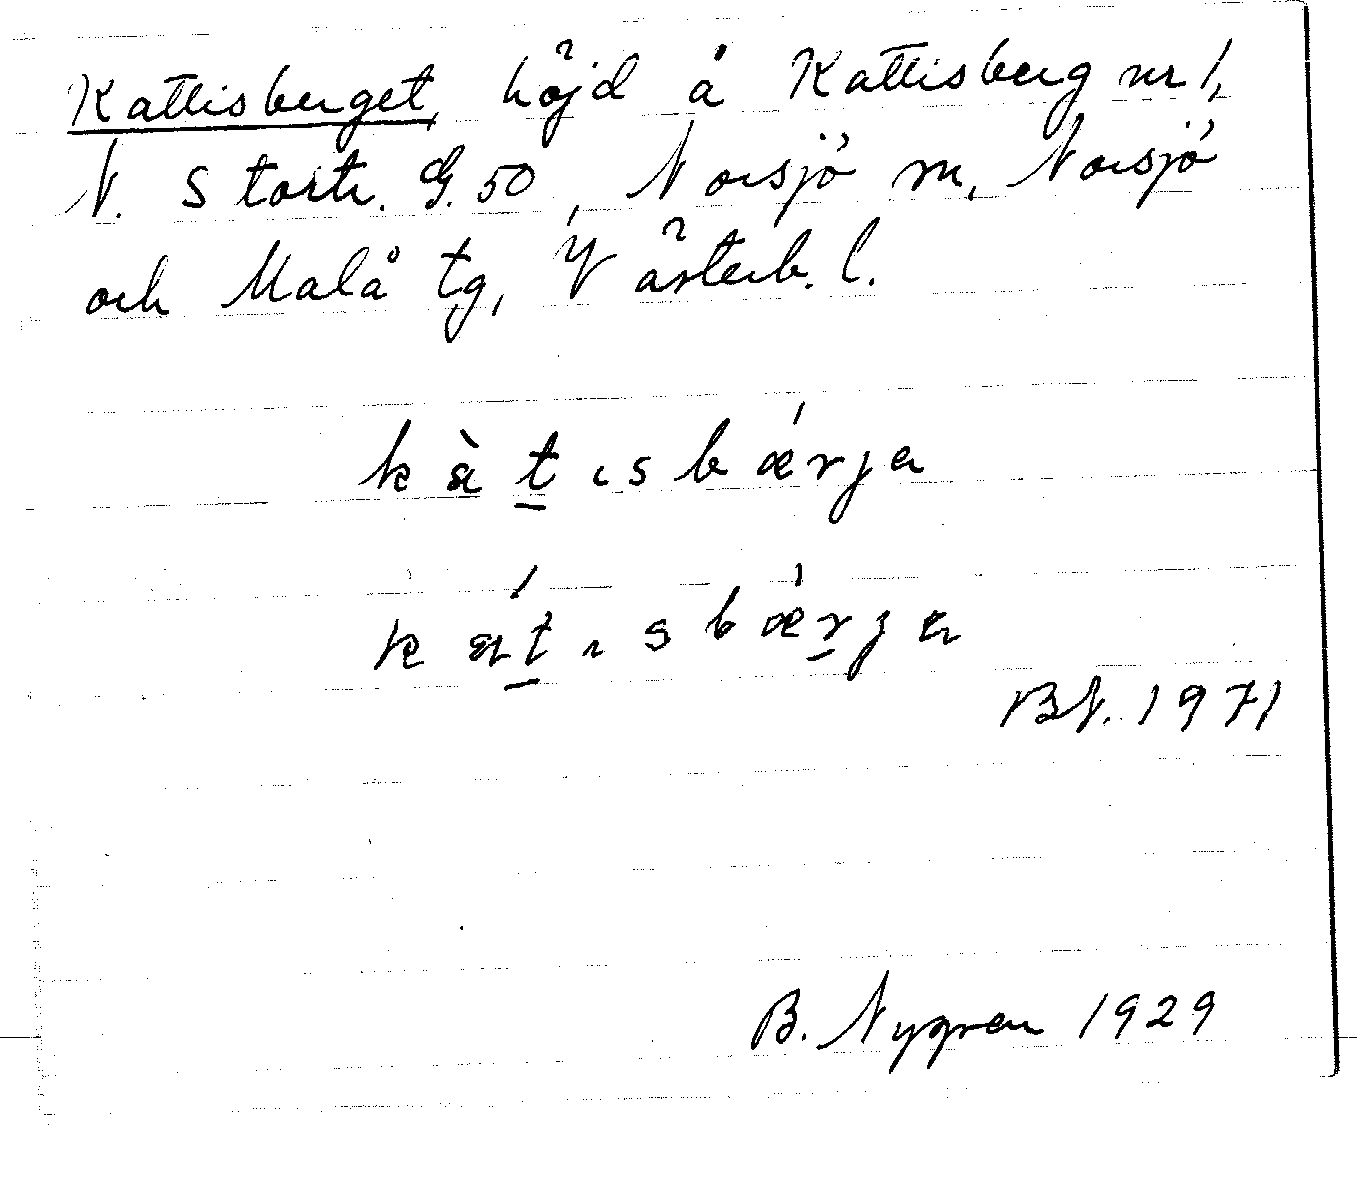 Kattisberget, höjd å Kattisberg nr 1,
N. Stortr. G. 50, Norsjö sn, Norsjö
och Malå tg, Västerb. l.
kàt̲ɩsbǽrja
kát̲ɩsbǽr̲ja
BN. 1971
B. Nygren 1929